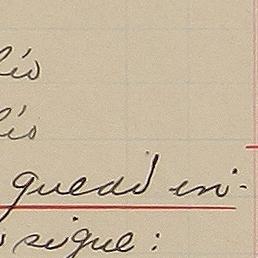 lio
lio
quedó en-
sigue: